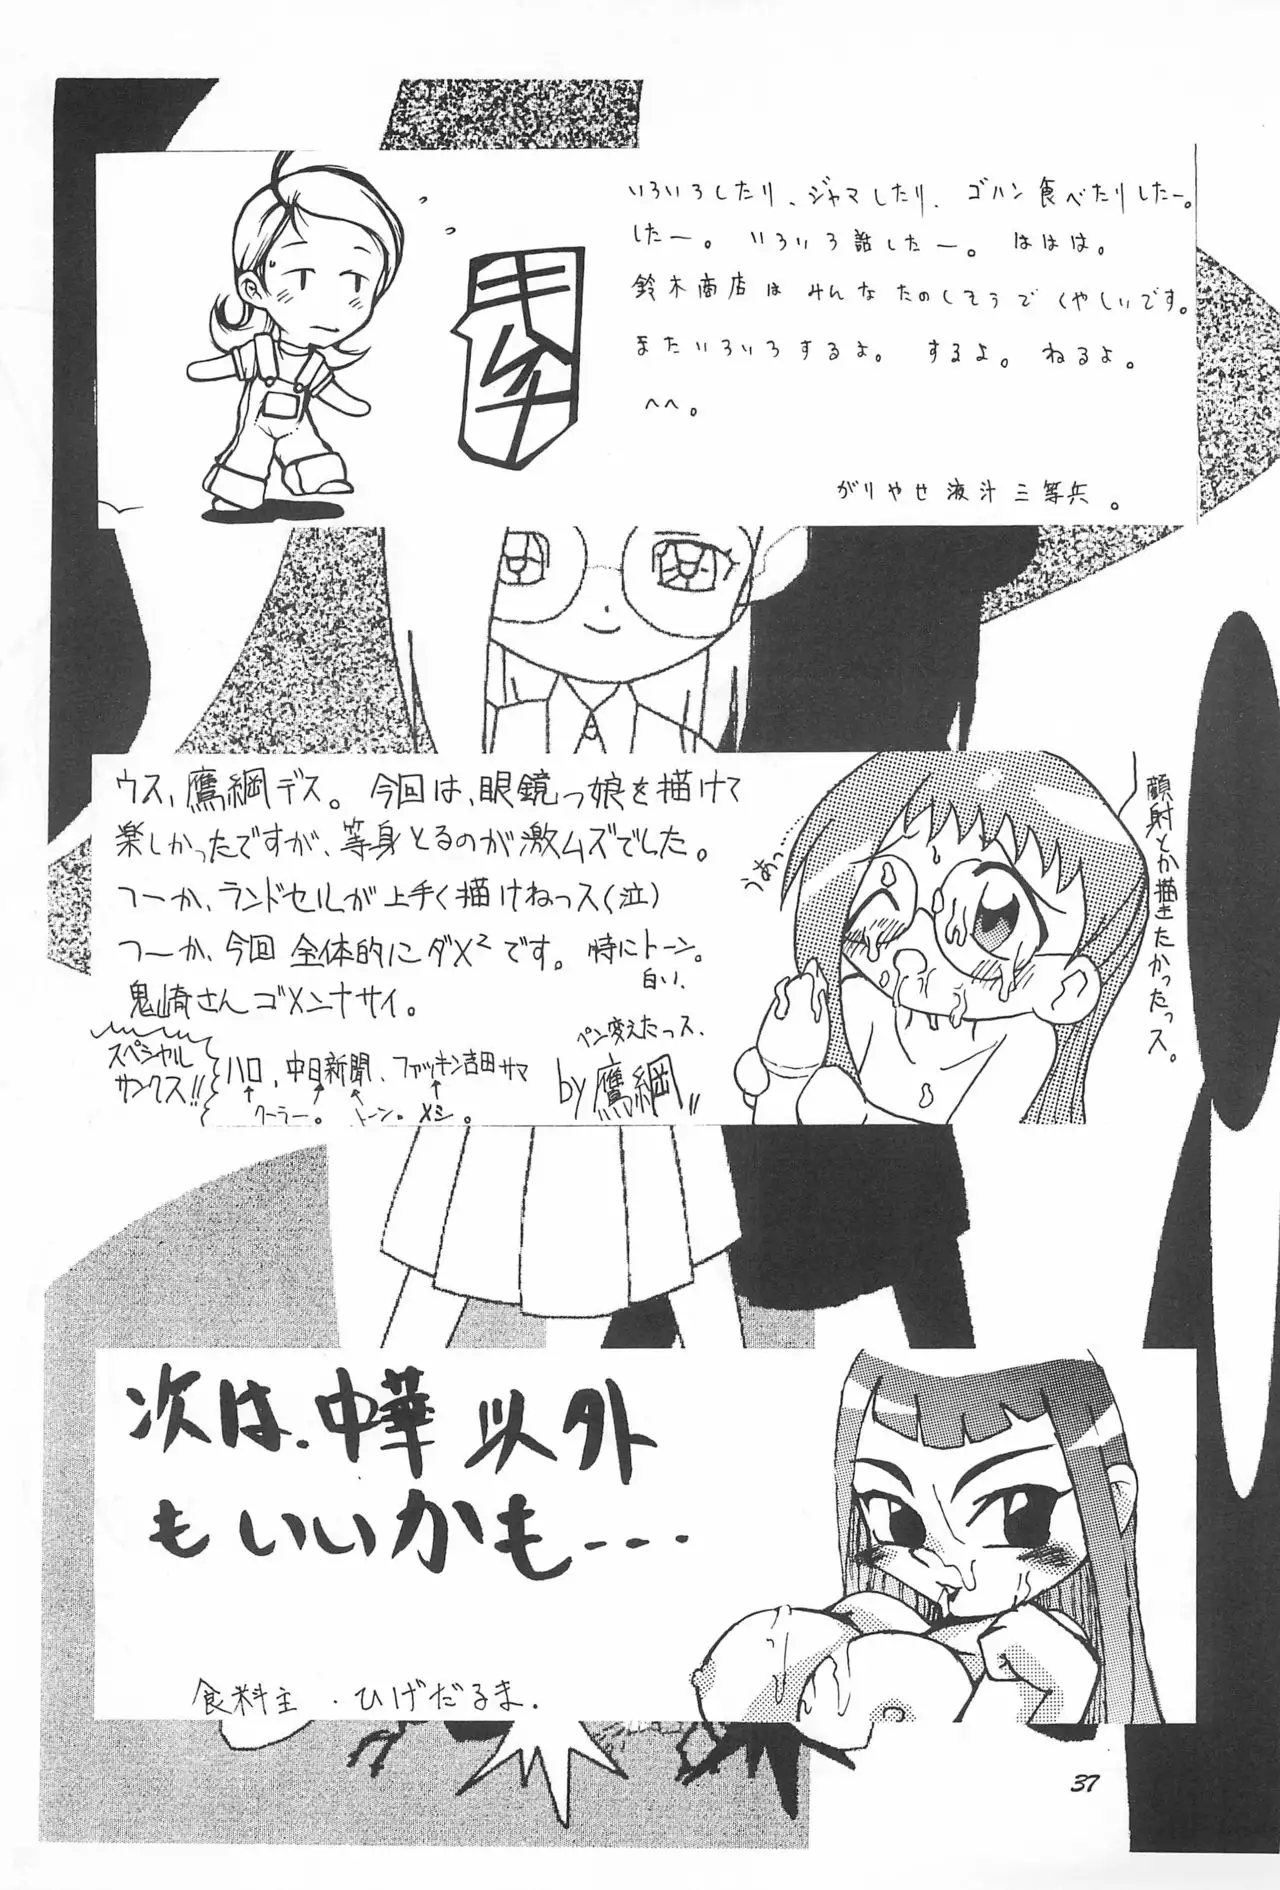 いろいろしたり、ジャマしたり、ゴハン食べたりしたー。
したー。いろいろ話したー。ははは。
鈴木商店はみんなたのしそうでくやしいです。
またいろいろするよ。するよ。ねるよ。
へへ。
がりやせ液汁三等兵。
ウス、鷹綱デス。今回は、眼鏡っ娘を描けて
楽しかったですが、等身とるのが激ムズでした。
つーか、ランドセルが上手く描けねっス(泣)
つーか、今回全体的にダメ²です。特にトーン。
白い、
鬼崎さんゴメンナサイ。
ペン変えたっス、
スペシャル
サンクス!!
ハロ、中日新聞、ファッキン吉田サマ
↑ ↑ ↑ ↑
クーラー。 トーン。メシ。
by 鷹綱!!
うあっ…
顔射とか描きたかったっス。
次は、中華以外
もいいかも---
食料主・ひげだるま.
37